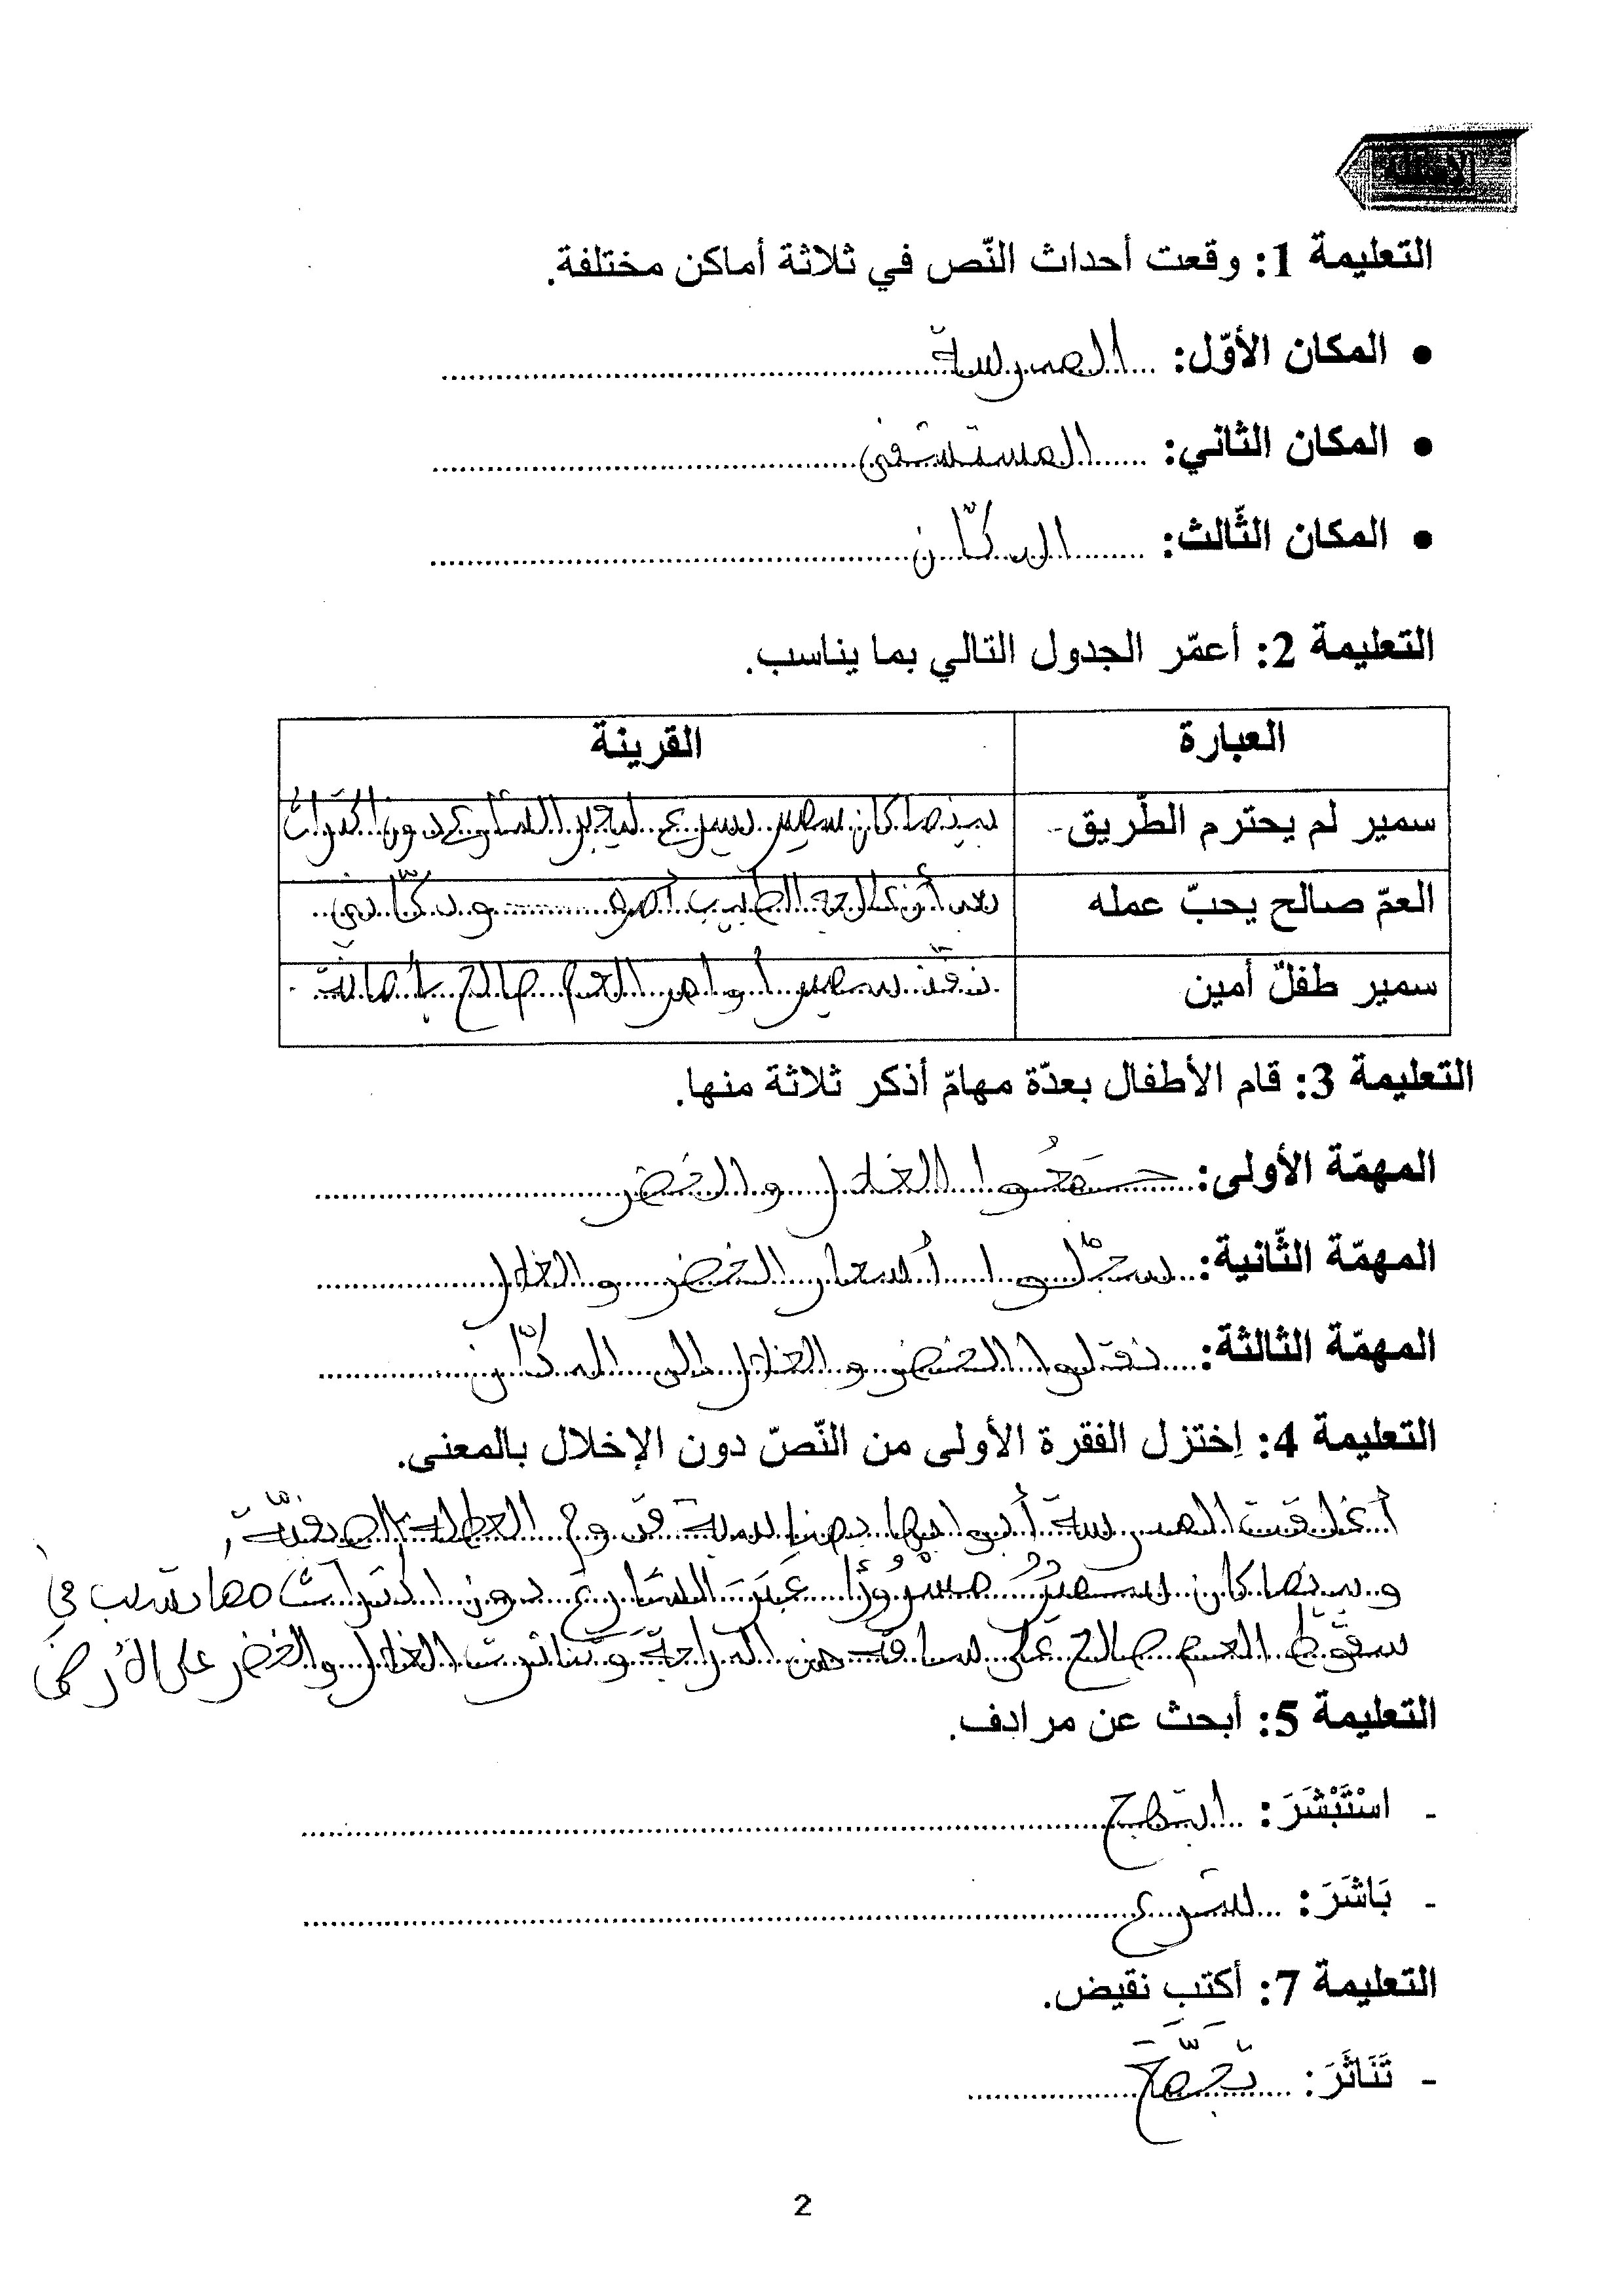 الأسئلة
التعليمة 1: وقعت أحداث النّص في ثلاثة أماكن مختلفة.
• المكان الأوّل: المدرسة
• المكان الثاني: المستشفى
• المكان الثّالث: الدكّان
التعليمة 2: أعمّر الجدول التالي بما يناسب.
العبارة القرينة
سمير لم يحترم الطّريق- بينما كان سمير يسرع ليعبر الشارع دون اكتراث
العمّ صالح يحبّ عمله بعد أن عالجه الطبيب أصر ........ ودكّاني
سمير طفلٌ أمين نفّذ سمير أوامر العم صالح بأمانة
التعليمة 3: قام الأطفال بعدّة مهامّ أذكر ثلاثة منها.
المهمّة الأولى: جمعُوا الغلال والخضر
المهمّة الثّانية: سجّلوا أسعار الخضر والغلال
المهمّة الثالثة: نقلوا الخضر والغلال إلى الدكّان
التعليمة 4: اِختزل الفقرة الأولى من النّصّ دون الإخلال بالمعنى.
أغلقت المدرسة أبوابها بمناسبة قدوم العطلة الصيفيّة،
وبينما كان سميرٌ مسرُورًا عبَرَ الشارع دون اكتراث مما تسبب في
سقوط العم صالح على ساقه من الدراجة وتناثرت الغلال والخضر على الأرض
التعليمة 5: أبحث عن مرادف.
- اسْتَبْشَرَ: ابتهج
- بَاشَرَ: شرع
التعليمة 7: أكتب نقيض.
- تَنَاثَرَ: تجمّع
2